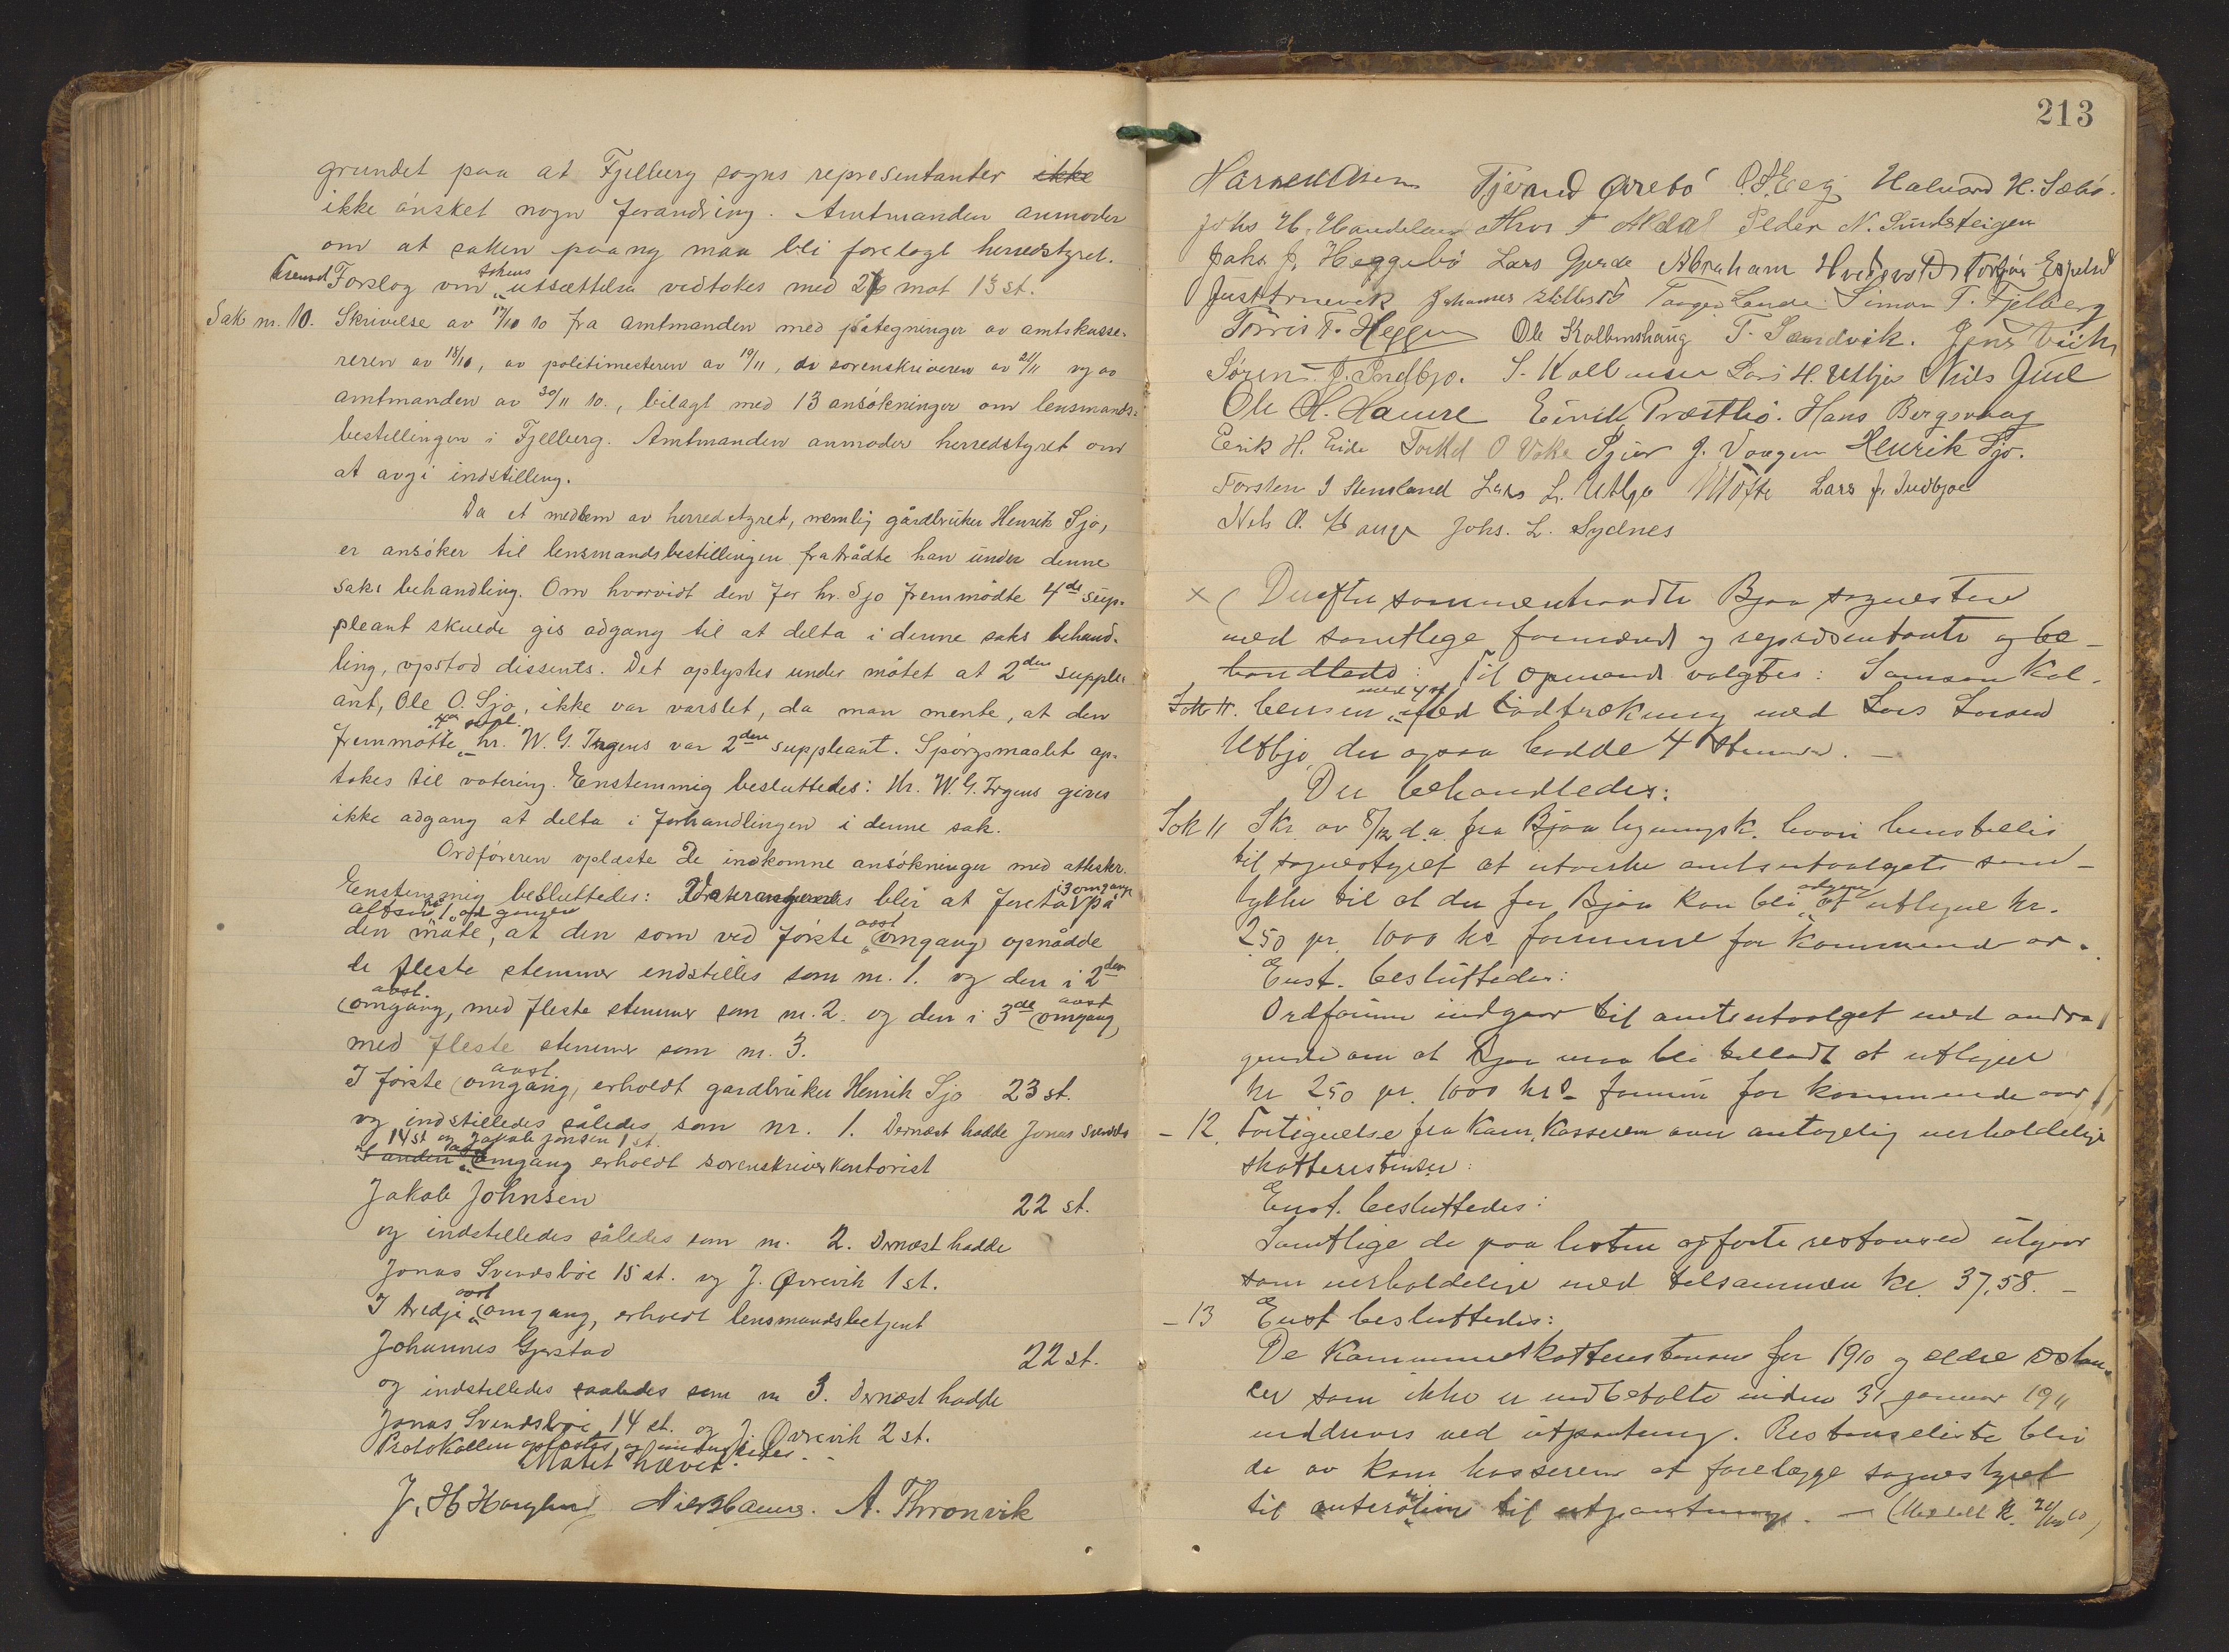 grundet paa at Fjelberg sogns representanter ikke
ikke ønsket nogn forandring. Amtmanden anmoder
om at saken paany maa bli forelagt herredstyret.
Forslag om sakens utsættelse vedtokes med 26 mot 13 st.
Sak nr. 10. Skrivelse av 17/10 10 fra amtmanden med påtegninger av amtskasse-
reren av 18/10, av politimesteren av 19/11, av sorenskriveren av 21/11 og av
amtmanden av 30/11 10., bilagt med 13 ansøkninger om lensmands-
bestillingen i Fjelberg. Amtmanden anmoder herredstyret om
at avgi indstilling.
Da et medlem av herredstyret, nemlig gårdbruker Henrik Sjo,
er ansøker til lensmandsbestillingen fratrådte han under denne
saks behandling. Om hvorvidt den for hr. Sjo fremmødte 4de sup-
pleant skulde gis adgang til at delta i denne saks behand-
ling, opstod dissents. Det oplystes under møtet at 2den supple-
ant, Ole O. Sjo, ikke var varslet, da man mente, at den
fremmøtte 4de supl. hr. W. G. Irgens var 2den suppleant. Spørgsmaalet op-
tokes til votering. Enstemmig besluttedes: Hr. W. G. Irgens gives
ikke adgang at delta i forhandlingen i denne sak.
Ordføreren oplæste de indkomne ansøkninger med attester.
Enstemmig besluttedes: blir at foreta i 3 omgange på
den måte, at den som ved første avst. omgang opnådde
de fleste stemmer indstilles som nr. 1. og den i 2den
avst. omgang, med fleste stemmer som nr. 2. og den i 3de avst. omgang,
med fleste stemmer som nr. 3.
I første avst. omgang, erholdt gardbruker Henrik Sjo 23 st.
og indstilledes således som nr. 1. Dernæst hadde Jonas Svendsbøe
14 st og Jakob Jonsen 1 st.
I anden omgang erholdt sorenskriverkontorist
Jakob Johnsen 22 st.
og indstilledes således som nr. 2. Dernæst hadde
Jonas Svendsbøe 15 st. og J. Øvrevik 1 st.
I tredje avst omgang, erholdt lensmandsbetjent
Johannes Gjerstad 22 st.
og indstilledes saaledes som nr 3. Dernæst hadde
Jonas Svendsbøe 14 st. og J. Øvrevik 2 st.
Protokollen oplæstes og
Møtet hævet.
J. H. Haugland Nils Hauge. A. Thronvik
213
Tjerand Ørebø Halvard H. Sæbø.
Johs H. Thor T Peder N. Sundsteigen
Johs J. Heggebø Lars Gjerde Abraham Torbjør Espeland
Johannes Simon T. Fjelberg
Tørris T. Heggen Ole Kolbenshaug T. Sandvik. Jens
Søren J. Indbjo. S. Kolbensen Lars H. Utbjo Nils Juul
Ole H. Hamre Eirik Præstbø. Hans Bergshaug
Eirik H. Eide O Vaka J. Vaagen Henrik Sjo.
Torsten I Stensland Lars L. Utbjo Lars J. Indbjoe
Nils O. Hauge Johs. L. Sydnes
Derefter sammentraadte Bjoa sognestyre
med samtlige formænd og representanter og be-
handlede: Til opmand valgtes: Samson Kol-
Sak 11. bensen med 4 st ved lodtrækning med Lars Larsen
Utbjo, der ogsaa hadde 4 stemmer. —
Der behandledes:
Sak 11 Skr. av 8/12 d.a. fra Bjoa ligningsk. hvori henstilles
til sognestyret at utvirke amtsutvalgets sam-
tykke til at der for Bjoa kan bli adgang at utligne kr.
2.50 pr. 1000 kr formue for kommende aar.
Enst. besluttedes:
Ordføreren indgaar til amtsutvalget med andra-
gende om at Bjoa maa bli tilladt at utligne
kr 2.50 pr. 1000 krs formue for kommende aar
- 12. Fortegnelse fra Kom. Kasseren over antagelig uerholdelige
skatterestanser:
Enst. besluttedes:
Samtlige de paa listen opførte restanser utgaar
som uerholdelige med tilsammen kr. 37,58. —
- 13 Enst besluttedes:
De Kommuneskatterestanser for 1910 og ældre restan-
cer som ikke er indbetalte inden 31 januar 1911
inddrives ved utpantning. Restanseliste blir
de av kom kasseren at forelægge sognestyret
til utpantning. —